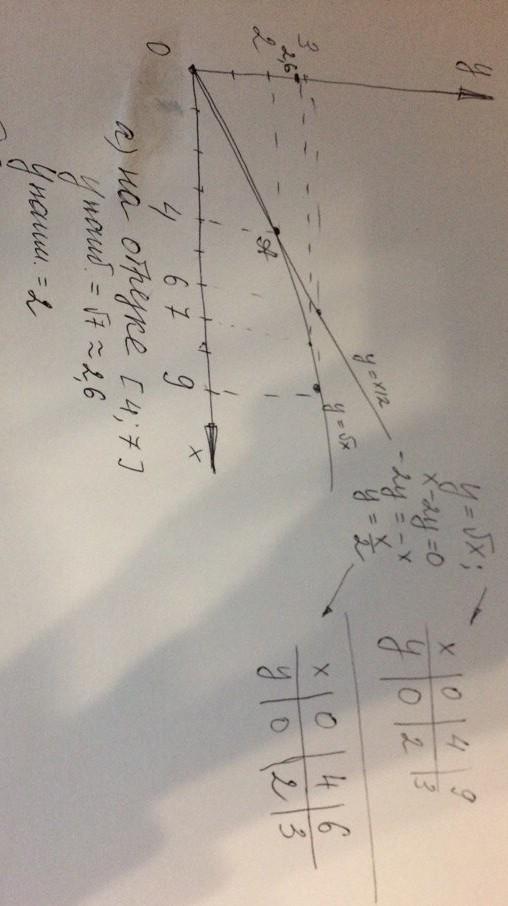 y = √x;
x - 2y = 0
-2y = -x
y = x/2
x | 0 | 4 | 9
y | 0 | 2 | 3
x | 0 | 4 | 6
y | 0 | 2 | 3
y
3
2,6
2
0
4
6
7
9
x
A
y = x/2
y = √x
а) на отрезке [4; 7]
y наиб. = √7 ≈ 2,6
y наим. = 2